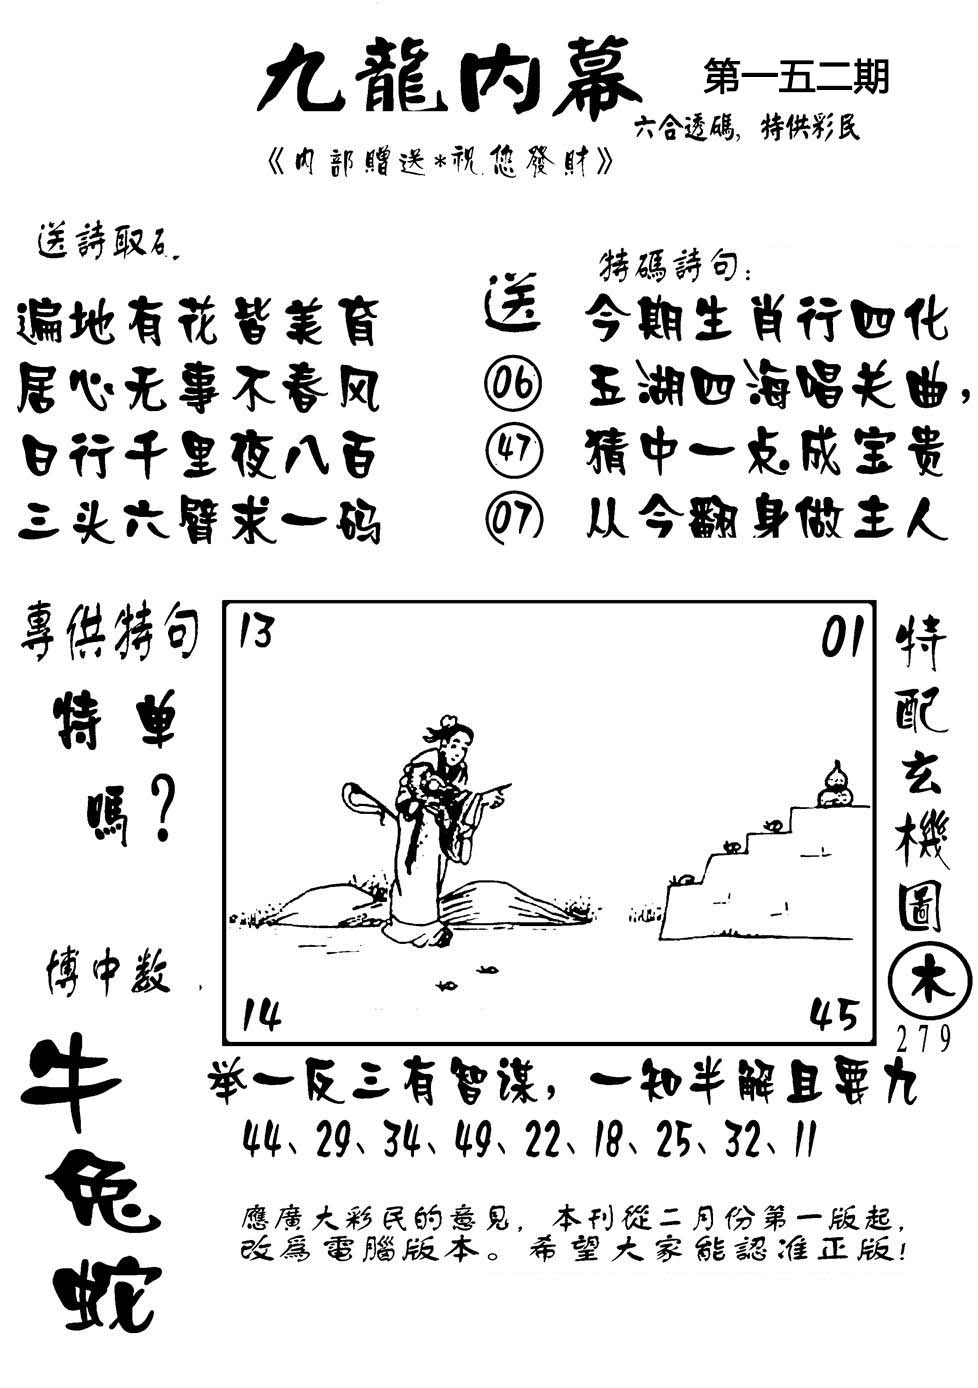 九龍内幕
第一五二期
六合透碼，特供彩民
《内部贈送*祝您發財》
送詩取
遍地有花皆美育
居心无事不春风
日行千里夜八百
三头六臂求一码
送
06
47
07
特碼詩句：
今期生肖行四化
五湖四海唱关曲，
猜中一点成宝贵
从今翻身做主人
專供特句
特单
嗎？
博中数
牛
兔
蛇
13
01
14
45
特配玄機圖
木
279
举一反三有智谋，一知半解且要九
44、29、34、49、22、18、25、32、11
應廣大彩民的意見，本刊從二月份第一版起，
改爲電腦版本。希望大家能認准正版！